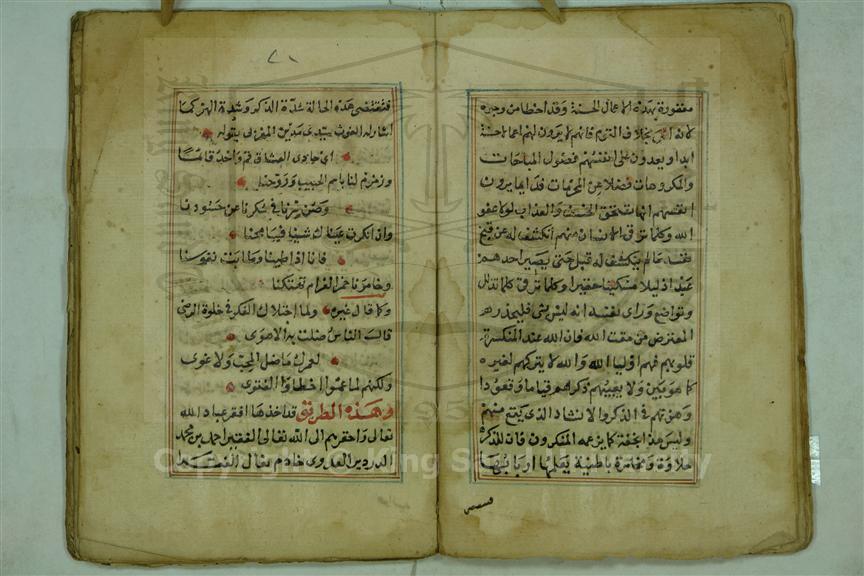 مغفورة بهذه الاعمال الحسنة وقد اخطا من وجوه
ابدا ويعدون على انفسهم فضول المباحات
والمكروهات فضلا عن المحرمات قد ايما يرون
انفسهم انها تستحق الخسف والعذاب لولا عفو
الله وكلما ترقى الانسان منهم انكشف له عن قبح
نفسه ما لم ينكشف له قبل حتى يصير احدهم
عبدا ذليلا مسكينا حقيرا وكلما ترقى كلما تذلل
وتواضع وراى نفسه انه ليس بشي فليحذر هذا
المعترض من مقت الله فان الله عند المنكسرة
قلوبهم فهم اوليا الله والله لا يتركهم لغيره
كا هو مبين ولا يعيبهم ذكرهم قياما وقعودا
وهزتهم في الذكر والانشاد الذي يقع منهم
وليس هذا بخفة كما يزعمه المنكرون فان للذكر
حلاوة ومخامرة باطنية يعلمها اربابها
فتقتضي
٧١
فتقتضي هذه الحالة شدة الذكر وشدة الهز كما
اشار له الغوث سيدي مدين المغربي بقوله
اي حادي العشاق قم واحد قائما
وزمزم لنا باسم الحبيب وروحنا
وصن سرنا في سكرنا عن حسودنا
وان انكرت عيناك شيئا فسامحنا
فانا اذا طبنا وطابت نفوسنا
وخامرنا خمر الغرام تهتكنا
وكما قال غيره ولما اختلاك الفكر في خلوة الرضى
قالت الناس ضلت به الاهوى
لعمرك ما ضل المحب ولا غوى
ولكنهم لما عموا اخطاوا الفتوى
وهذه الطريق قد اخذها افقر عباد الله
تعالى واحقرهم الى الله تعالى الفقير احمد بن محمد
الدردير العدوي خادم نعال الفقرا